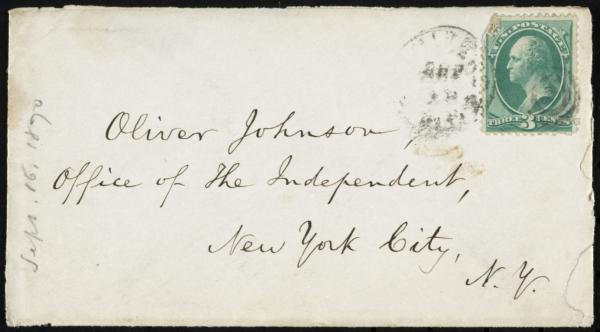 U.S. POSTAGE
THREE 3 CENTS
Oliver Johnson,
Office of The Independent,
New York City,
N. Y.
Sept. 16, 1870